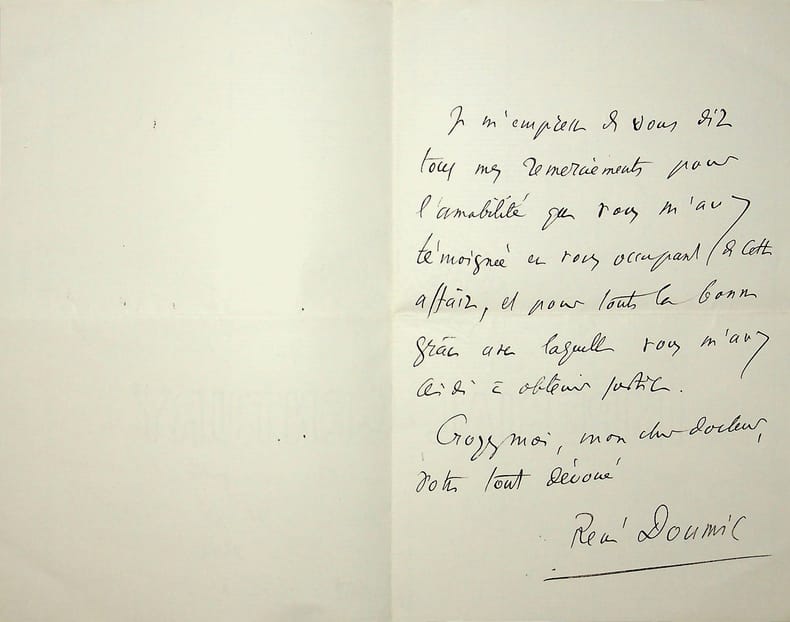 Je m'empresse de vous dire
tous mes remerciements pour
l'amabilité que vous m'avez
témoignée en vous occupant de cette
affaire, et pour toute la bonne
grâce avec laquelle vous m'avez
aidé à obtenir justice.
Croyez moi, mon cher docteur,
votre tout dévoué
René Doumic